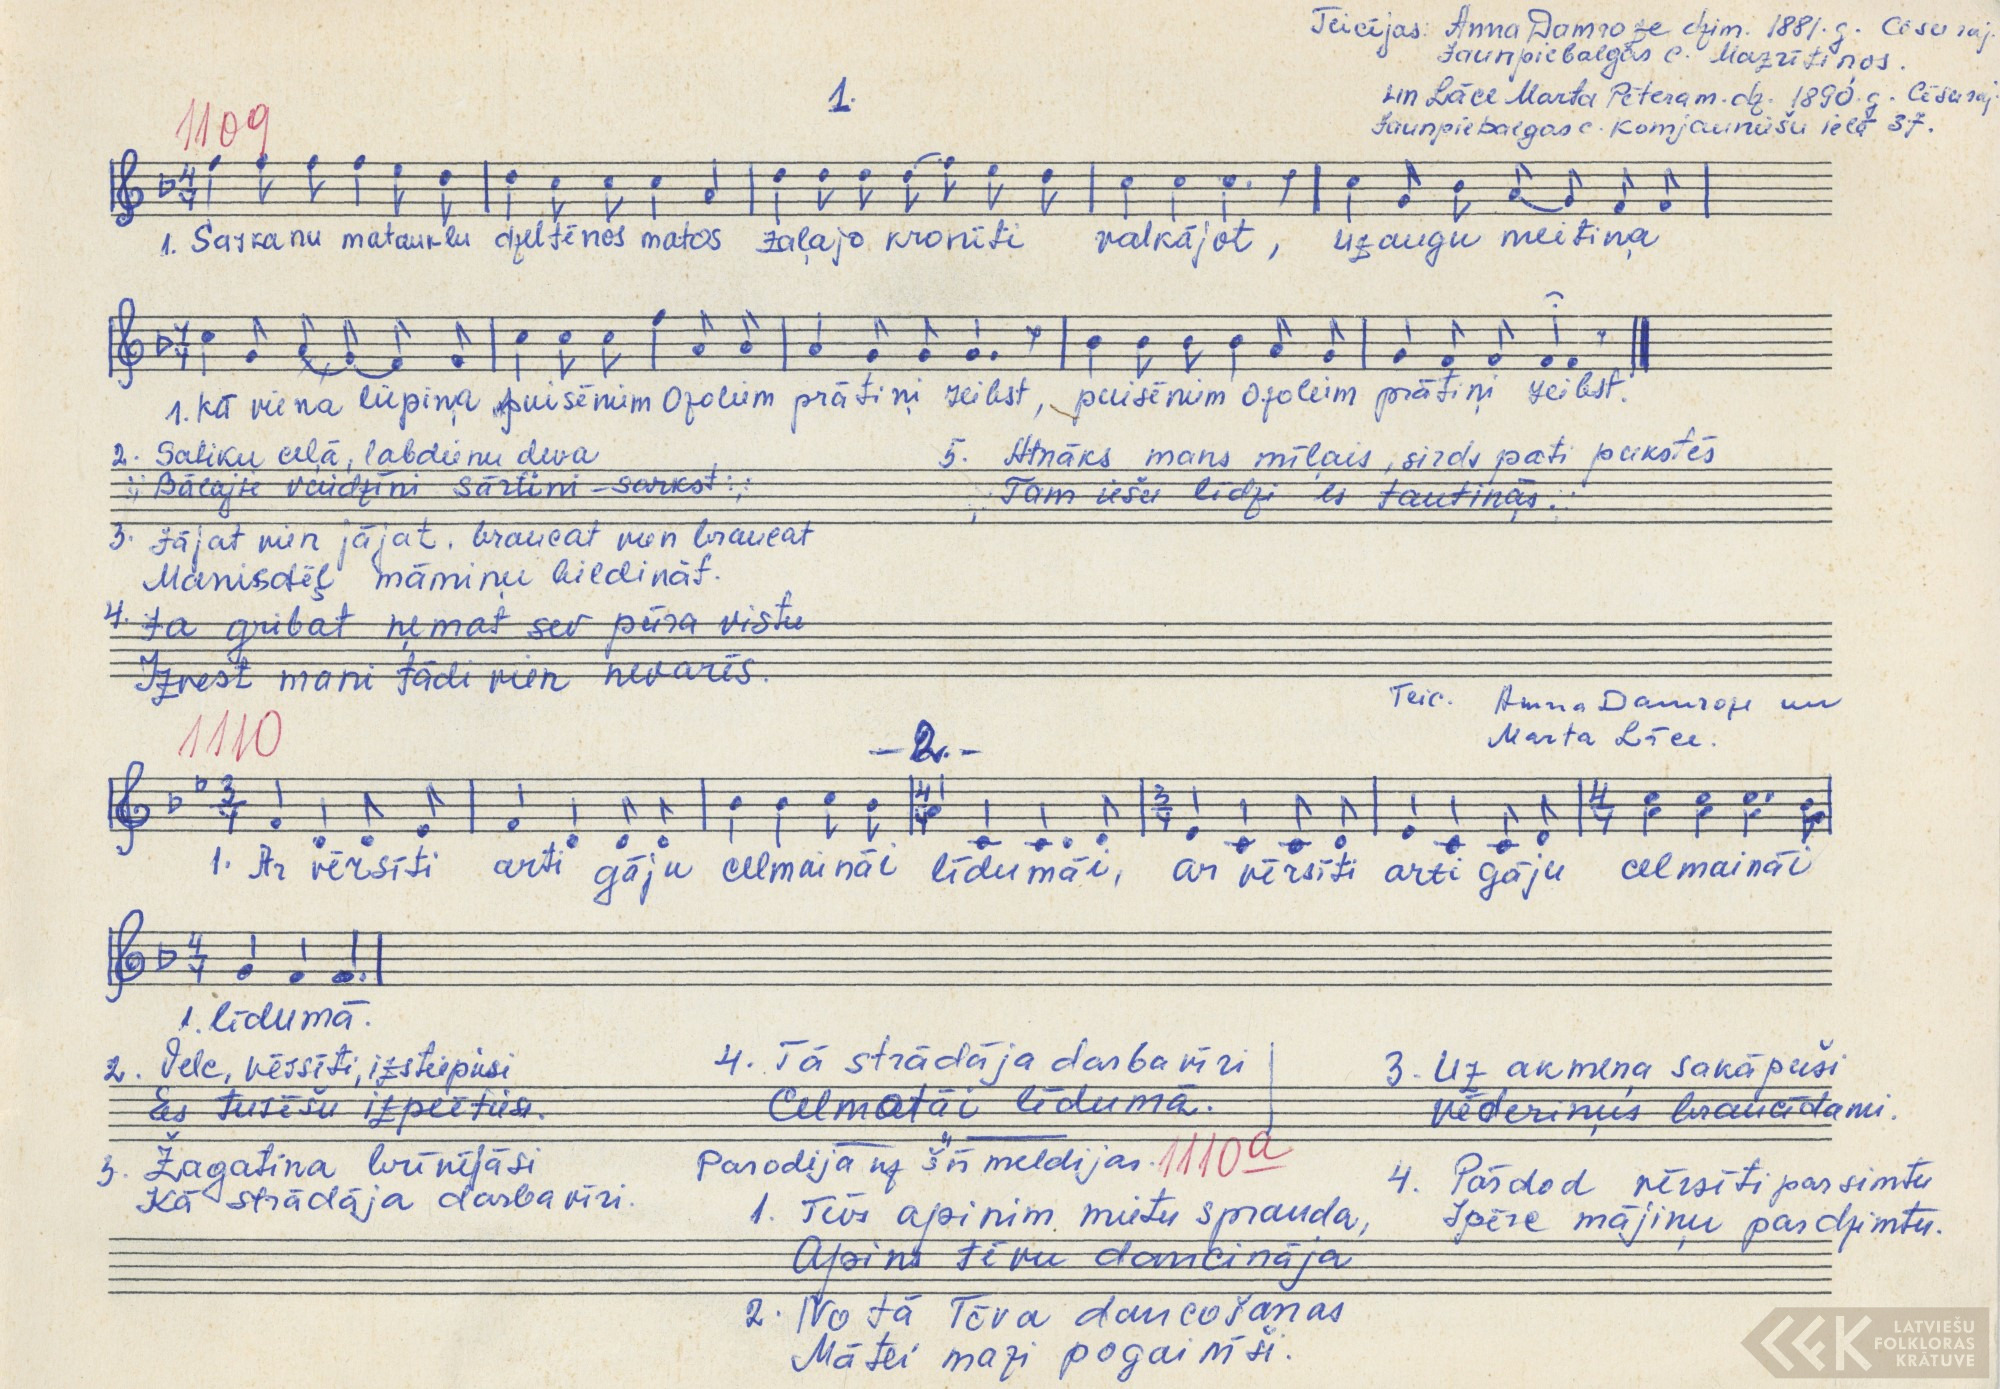 Teicējas: Anna Damroze dzim. 1881. g. Cēsu raj.
Jaunpiebalgas c. Mazrītiņos.
un Lāce Marta Pētera m. dz. 1890. g. Cēsu raj.
Jaunpiebalgas c. Komjauniešu ielā 37.
1.
1109
1. Sarkanu matauklu dzeltēnos matos zaļajo kronīti valkājot, uzaugu meitiņa
1. kā viena liepiņa puisēnim Ozoliem prātiņi reibst, puisēnim Ozoliem prātiņi reibst.
2. Satiku ceļā, labdienu deva
Bālajie vaidziņi sārtiņi sarkst
3. Jājat vien jājat, braucat vien braucat
Manis dēļ māmiņu bildināt.
4. Ja gribat ņemat sev pūra vistu
Izvest mani tādi vien nevarēs.
5. Atnāks mans mīļais, sirds pati pukstēs
Tam iešu līdzi es tautiņās.
Teic. Anna Damroze un
Marta Lāce.
1110
- 2. -
1. Ar vērsīti arti gāju celmaināi līdumāi, ar vērsīti arti gāju celmaināi
1. līdumā.
2. Velc, vērsīti, izstiepiesi
Es turēšu izpeetiesi.
3. Žagatiņa brīnījāsi
Kā strādāja darba vīri.
4. Tā strādāja darba vīri
Celmatāi līdumā.
Parodija uz šīs meldijas. 1110a
1. Tēvs apiņim mietu sprauda,
Apins tēvu dancināja
2. No tā Tēva dancošanas
Mātei mazi pogainīši.
3. Uz akmeņa sakāpuši
vēderiņus braucīdami.
4. Pārdod vērsīti par simtu
Ipēre mājiņu par dzimtu.
LATVIEŠU
FOLKLORAS
KRĀTUVE